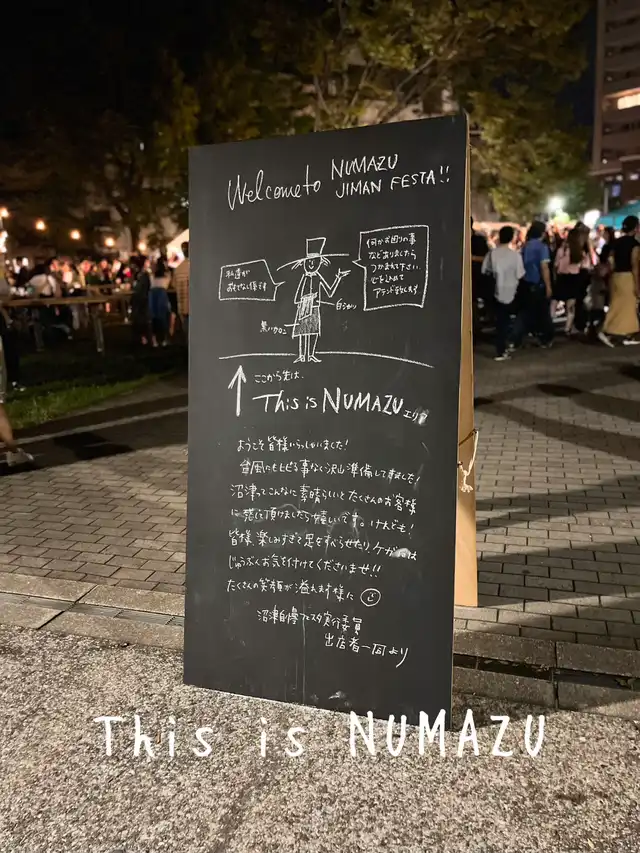 Welcome to NUMAZU
JIMAN FESTA!!
私達が
おもてなし係です
何かお困りの事
などありましたら
つかまえて下さい。
心を込めて
アテンド致します
白シャツ
黒い
ここから先は、
This is NUMAZU エリア
ようこそ皆様いらっしゃいました!
台風にもビビる事なく沢山準備して来ました!
沼津ってこんなに素晴らしいとたくさんのお客様
に感じて頂けましたら嬉しいです。けれども!
皆様楽しみすぎて足をすべらせたりケガ
じゅうぶんお気を付けてくださいませ!!
たくさんの笑顔が溢れます様に
沼津自慢フェスタ実行委員
出店者一同より
This is NUMAZU